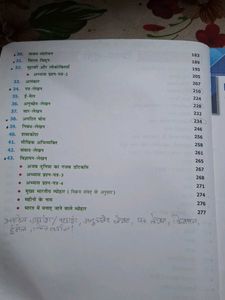 30. वाक्य-संशोधन 183
31. विराम चिह्न 189
32. मुहावरे और लोकोक्तियाँ 195
• अभ्यास प्रश्न-पत्र-2 205
33. अलंकार 207
34. पत्र-लेखन 210
35. ई-मेल 224
36. अनुच्छेद-लेखन 228
37. सार-लेखन 232
38. अपठित बोध 234
39. निबंध-लेखन 246
40. हास्यबोध 258
41. मौखिक अभिव्यक्ति 261
42. संवाद-लेखन 262
43. विज्ञापन-लेखन 266
• अजब दुनिया का गजब दृष्टिकोण 268
• अभ्यास प्रश्न-पत्र-3 269
• अभ्यास प्रश्न-पत्र-4 271
• मुख्य भारतीय त्योहार 274
• महीनों के नाम 276
• भारत में मनाए जाने वाले त्योहार 277
अपठित गद्यांश / पद्यांश, अनुच्छेद लेखन, पत्र लेखन, विज्ञापन,